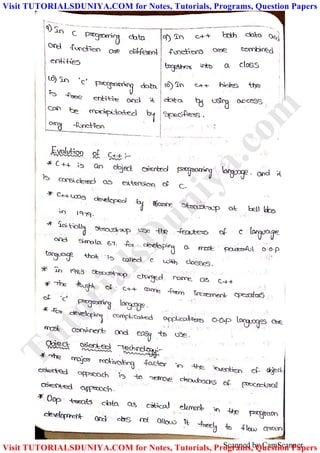 Visit TUTORIALSDUNIYA.COM for Notes, Tutorials, Programs, Question Papers
9) In C programing data
and function are different
entities
9) In c++ both data and
functions are combined
together into a class
10) In 'c' programing data
is free entitie and it
can be manipulated by
any function
10) In c++ hides the
data by using access
specifiers.
Evolution of C++ :-
* C++ is an object oriented programing language. and it
is considered as extension of C.
* C++ was developed by Bjarne Stroustrup at bell labs
in 1979.
* Initially Stroustrup use the features of c language
and Simula 67. for developing a most powerful O.O.P
language that is called c with classes.
* In 1983 Stroustrup changed name as C++
* The of C++ come from increment operators
of 'c' programing language.
* For developing complicated applications O.O.P languages are
most and easy to use.
Object oriented Technology:-
* The major motivating factor in the invention of object
oriented approach is to remove drawbacks of procedural
oriented approach.
* Oop treats data as critical element in the program
development and does not allow it freely to flow
TutorialsDuniya.com
Scanned by CamScanner
Visit TUTORIALSDUNIYA.COM for Notes, Tutorials, Programs, Question Papers